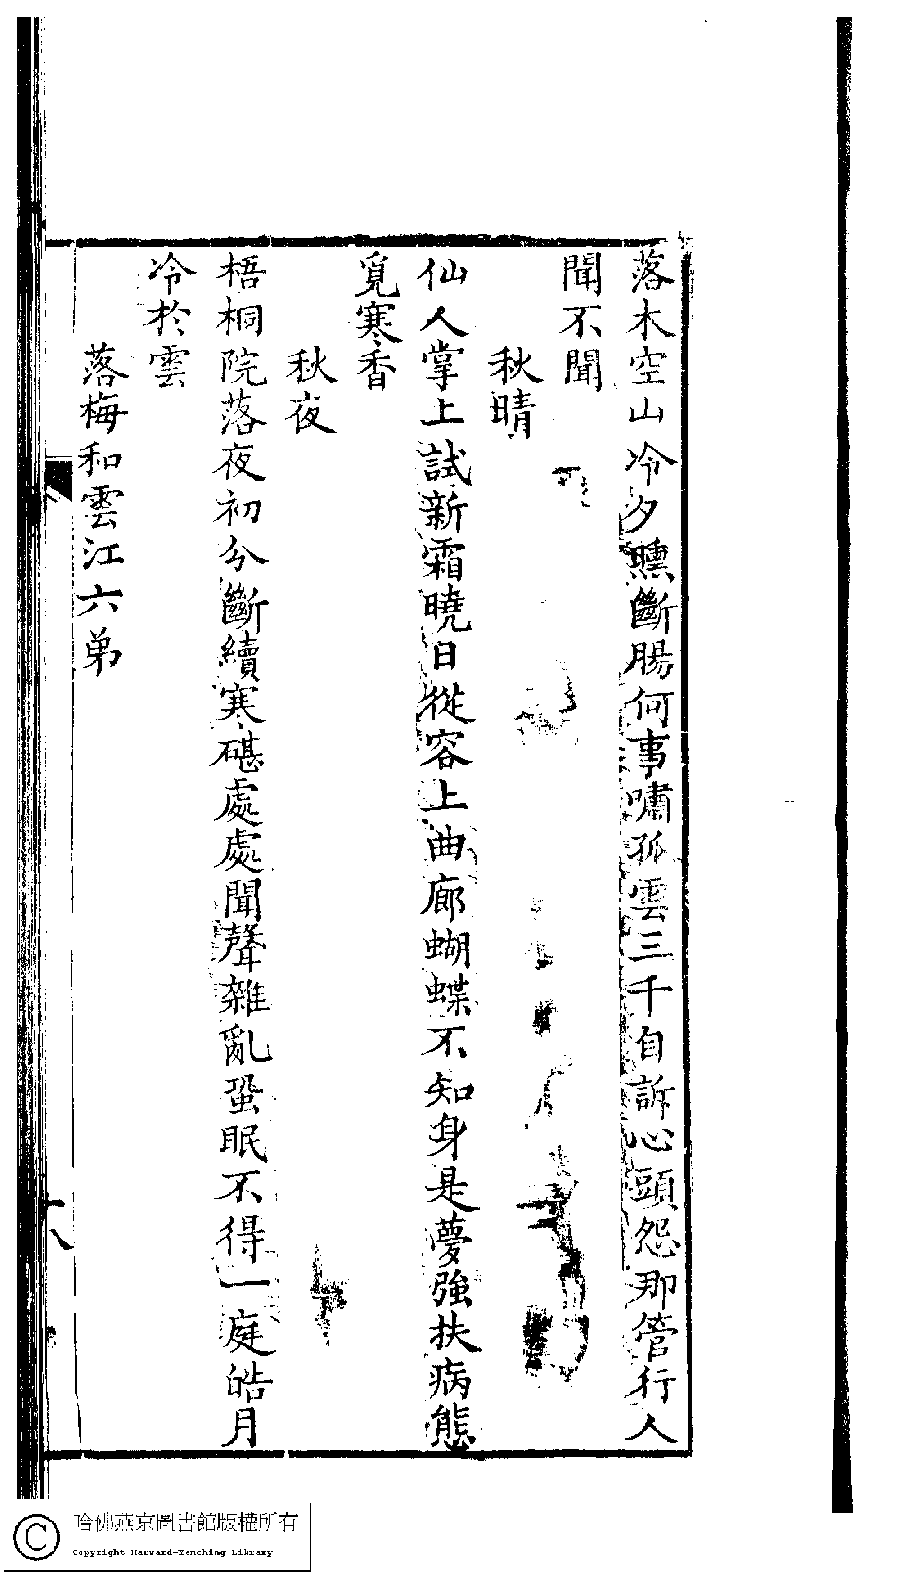 落木空山冷夕曛斷腸何事嘯孤雲三千自訴心頭怨那管行人
聞不聞
秋晴
仙人掌上試新霜曉日從容上曲廊蝴蝶不知身是夢強扶病態
覓寒香
秋夜
梧桐院落夜初分斷續寒碪處處聞聲雜亂蛩眠不得一庭皓月
冷於雲
落梅和雲江六弟
八
哈佛燕京圖書館版權所有
Copyright Harvard-Yenching Library